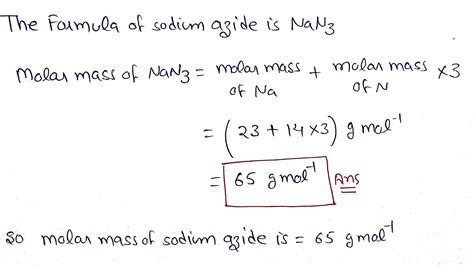 The Formula of sodium azide is NaN₃
Molar mass of NaN₃ = molar mass of Na + molar mass of N × 3
= (23 + 14 × 3) g mol⁻¹
= 65 g mol⁻¹ Ans
So molar mass of sodium azide is = 65 g mol⁻¹